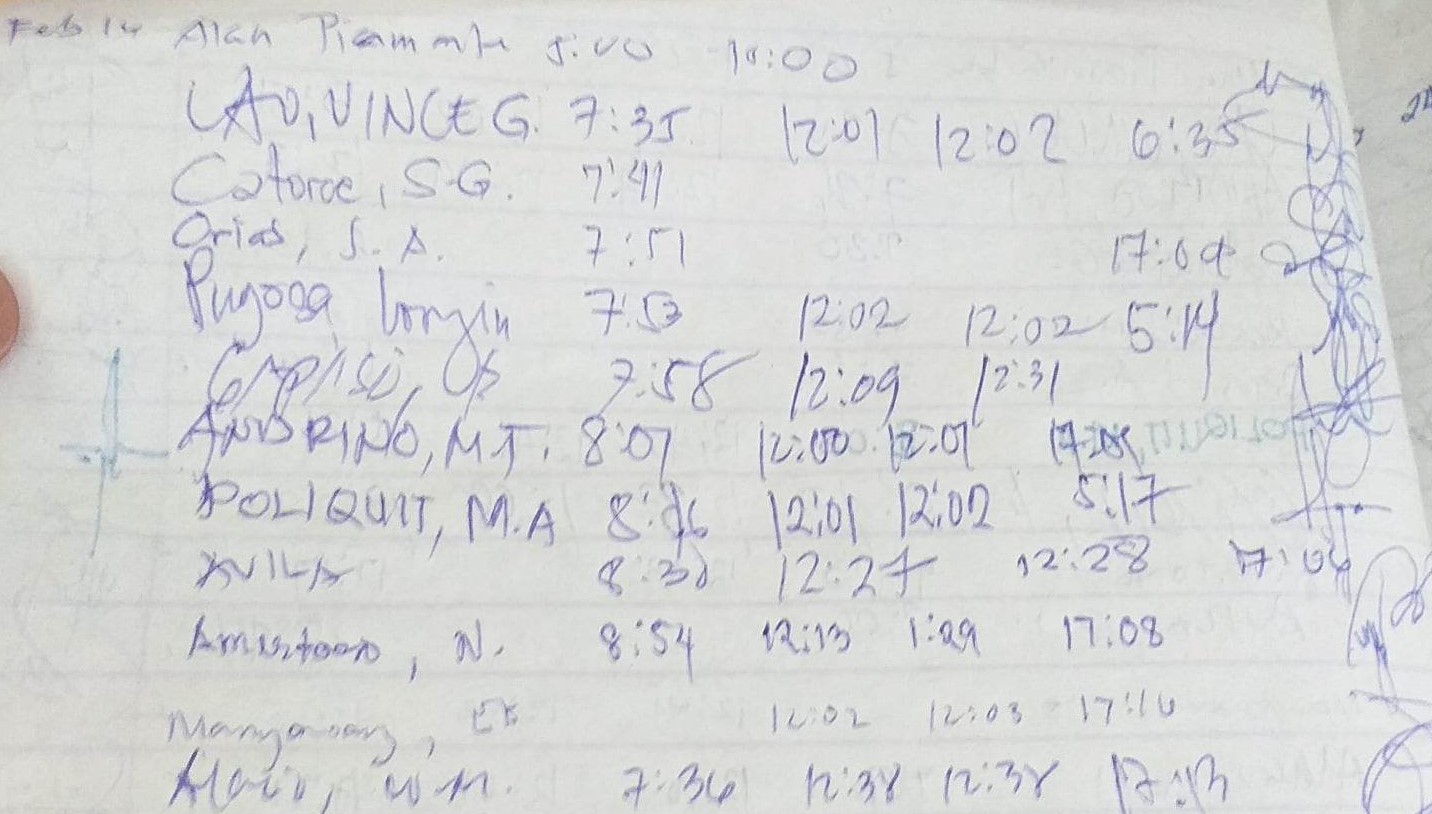 Feb 14 Alan 5:00 18:00
LAO, VINCE G. 7:35 12:01 12:02 6:35
Catorce, S.G. 7:41
Orias, S. A. 7:51 17:09
Pugosa 7:53 12:02 12:02 5:14
7:58 12:09 12:31
ANDRINO, M.T. 8:07 12:00 12:01
POLIQUIT, M.A 8:16 12:01 12:02 5:17
AVILA 8:30 12:27 12:28 17:04
N. 8:54 12:13 1:29 17:08
12:02 12:03 17:10
W.M. 7:36 12:38 12:38 17:13